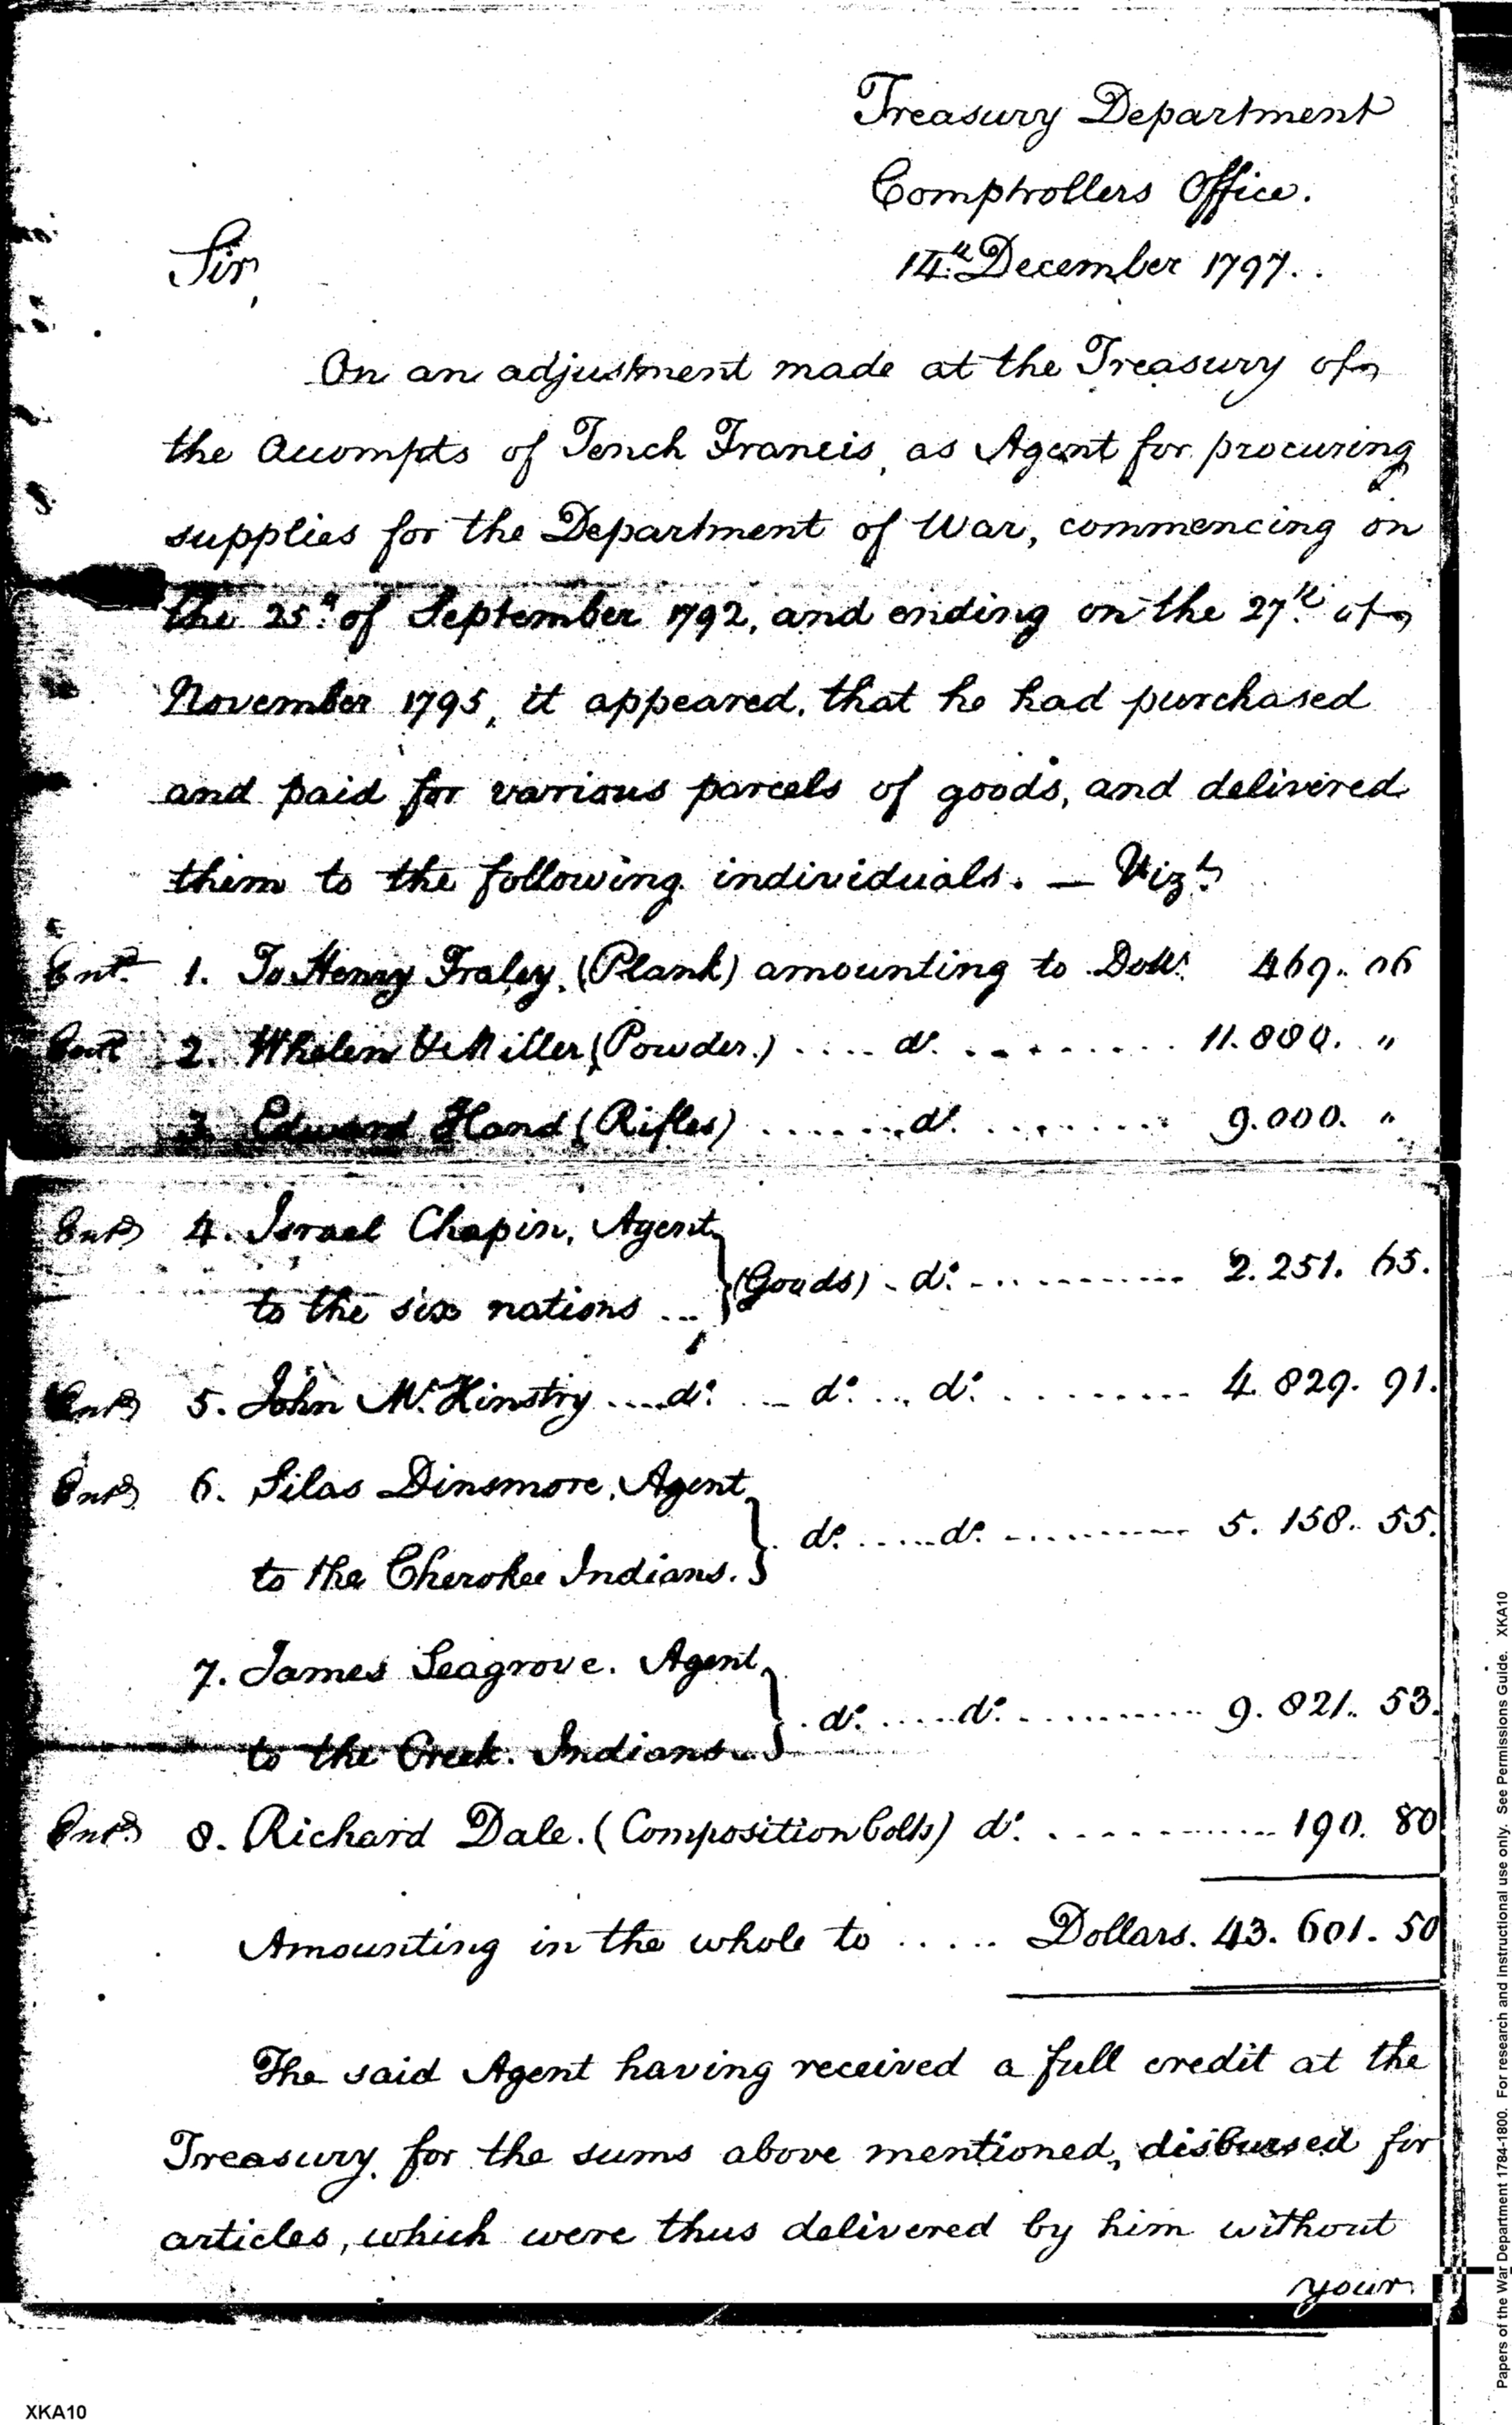 Treasury Department
Comptrollers Office.
14.th December 1797..
Sir,
On an adjustment made at the Treasury of
the Accompts of Tench Francis, as Agent for procuring
supplies for the Department of War, commencing on
the 25.th of September 1792, and ending on the 27.th of
November 1795, it appeared, that he had purchased
and paid for various parcels of goods, and delivered
them to the following individuals. — Vizt.
Entd. 1. To Henry Fraley, (Plank) amounting to Dolls. 469..06
Entd. 2. Whelen & Miller (Powder.) .... do. ........ 11.880. "
3. Edward Hand (Rifles) ....... do. ........ 9.000. "
Entd. 4. Israel Chapin, Agent
to the six nations ... } (Goods) . do. .......... 2.251. 65.
Entd. 5. John Mc.Kinstry .... do. ... do. ... do. ......... 4.829. 91.
Entd. 6. Silas Dinsmore, Agent
to the Cherokee Indians. } do. ..... do. .......... 5. 158.. 55.
7. James Seagrove. Agent
to the Creek. Indians.. } . do. ..... do. .......... 9. 821.. 53.
Entd. 8. Richard Dale. (Composition bolts) do. ............ 190. 80
Amounting in the whole to ..... Dollars. 43. 601. 50
The said Agent having received a full credit at the
Treasury, for the sums above mentioned, disbursed for
articles, which were thus delivered by him without
your
XKA10
Papers of the War Department 1784-1800. For research and instructional use only. See Permissions Guide. XKA10